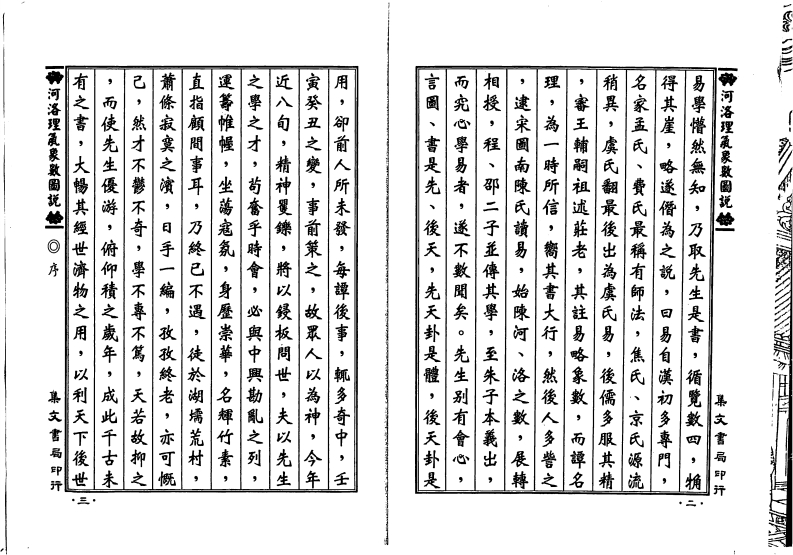 河洛理氣象數圖說
集文書局印行
易學懵然無知，乃取先生是書，循覽數四，觕
得其崖，略遂僭為之說，曰易自漢初多專門，
名家孟氏、費氏最稱有師法，焦氏、京氏源流
稍異，虞氏翻最後出為虞氏易，後儒多服其精
，審王輔嗣祖述莊老，其註易略象數，而譚名
理，為一時所信，嚮其書大行，然後人多訾之
，逮宋圖南陳氏讀易，始陳河、洛之數，展轉
相授，程、邵二子並傳其學，至朱子本義出，
而究心學易者，遂不數聞矣。先生別有會心，
言圖、書是先、後天，先天卦是體，後天卦是
·二·
用，卻前人所未發，每譚後事，輒多奇中，壬
寅癸丑之變，事前策之，故眾人以為神，今年
近八旬，精神矍鑠，將以鋟板問世，夫以先生
之學之才，苟奮乎時會，必與中興勘亂之列，
運籌帷幄，坐蕩寇氛，身歷崇華，名輝竹素，
直指顧間事耳，乃終已不遇，徒於湖壖荒村，
蕭條寂寞之濱，日手一編，孜孜終老，亦可慨
已，然才不鬱不奇，學不專不篤，天若故抑之
，而使先生優游，俯仰積之歲年，成此千古未
有之書，大暢其經世濟物之用，以利天下後世
河洛理氣象數圖說
◎序
集文書局印行
·三·